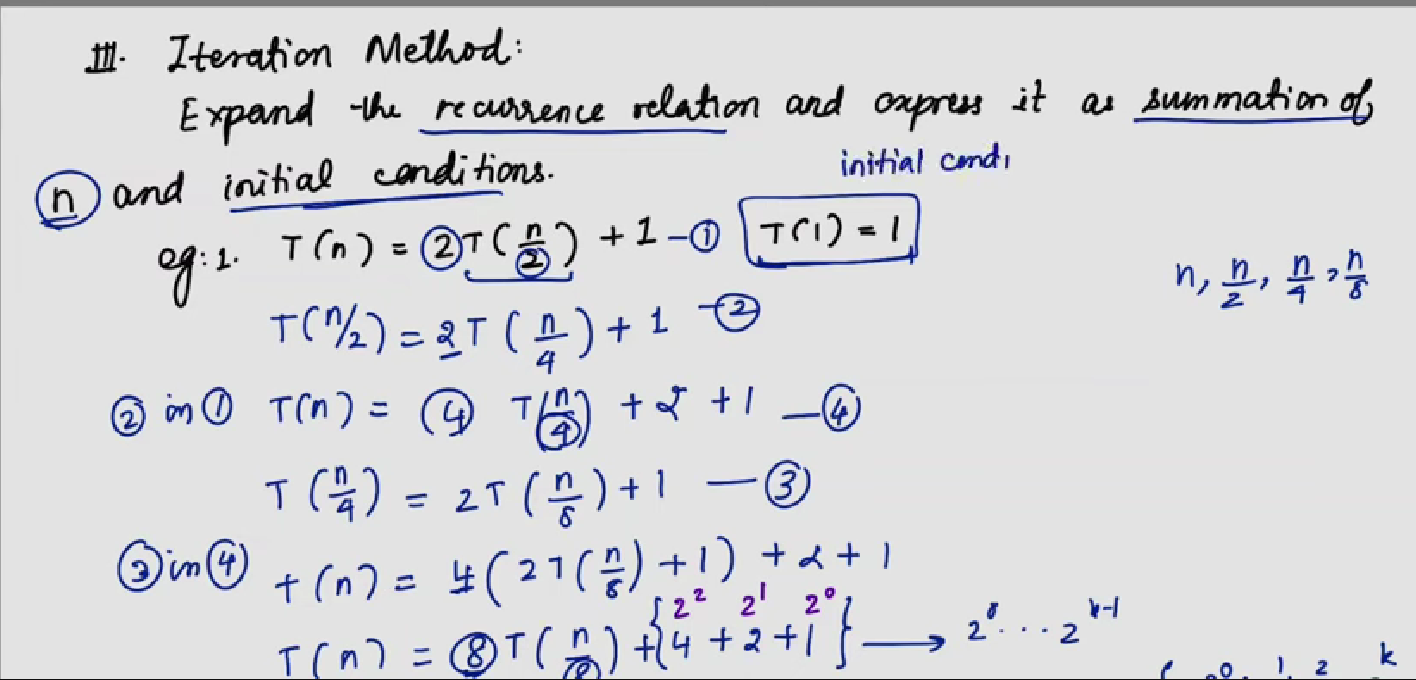 III. Iteration Method:
Expand the recurrence relation and express it as summation of
n and initial conditions.
initial condi
eg:1. T(n) = 2T(n/2) + 1 - ① T(1) = 1
n, n/2, n/4, n/8
T(n/2) = 2T(n/4) + 1 - ②
② in ① T(n) = 4 T(n/4) + 2 + 1 - ④
T(n/4) = 2T(n/8) + 1 - ③
③ in ④ T(n) = 4(2T(n/8) + 1) + 2 + 1
2² 2¹ 2⁰
T(n) = 8T(n/8) + {4 + 2 + 1} → 2⁰ ... 2^k-1
0 1 2 k